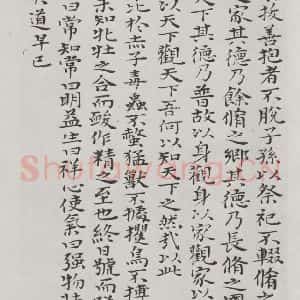 不拔善抱者不脫子孫以祭祀不輟脩之
之家其德乃餘脩之鄉其德乃長脩之國
天下其德乃普故以身觀身以家觀家以
以天下觀天下吾何以知天下之然哉以此
比於赤子毒蟲不螫猛獸不據攫鳥不搏
未知牝牡之合而酸作精之至也終日號而嗌
曰常知常曰明益生曰祥心使氣曰强物壯
道早已